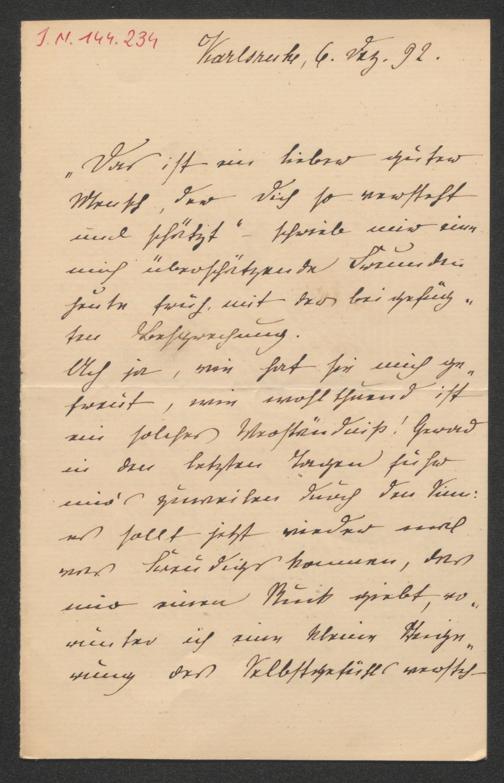 I.N. 144.234
Karlsruhe, 6. Dez. 92.
„Das ist ein lieber guter
Mensch, der Dich so versteht
und schätzt" – schrieb mir eine
mich überschätzende Freundin
heute früh mit der beigefüg„
ten Besprechung.
Ach ja, wie hat sie mich ge„
freut, wie wohlthuend ist
ein solches Verständniß! Gerad
in den letzten Tagen fuhr
mir's zuweilen durch den Sinn:
es sollt jetzt wieder mal
was Freudigs kommen, das
mir einen Ruck giebt, wo„
runter ich eine kleine Steige„
rung des Selbstgefühls versteh–